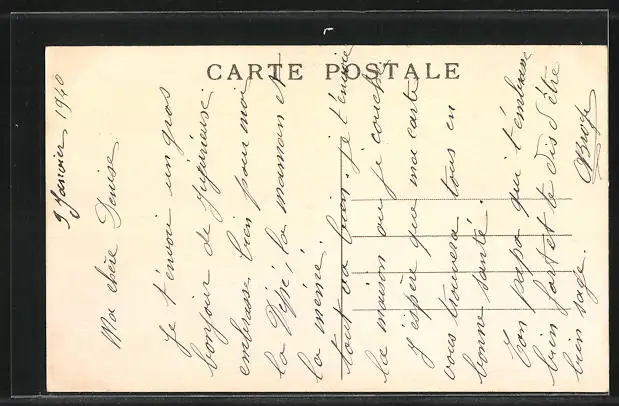 CARTE POSTALE
9 Janvier 1940
Ma chère Denise
Je t'envoie un gros
bonjour de
embrasse bien pour moi
la Pépé, la maman et
la mémé.
tout va bien. je t'envoie
la maison ou je couche
J'espère que ma carte
vous trouvera tous en
bonne santé.
Ton papa qui t'embrasse
bien fort et te dis d'être
bien sage.